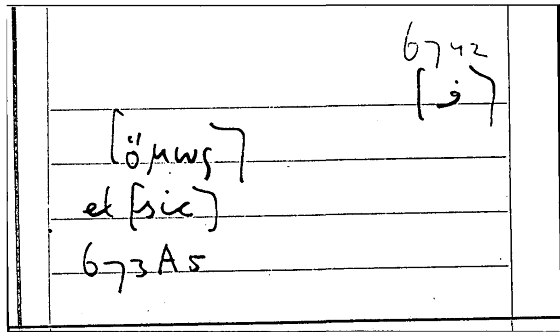 6742
[ف]
[ὅμως]
et [sic]
673A5